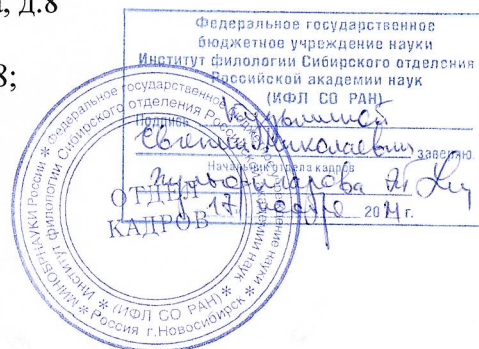 д.8
8;
Федеральное государственное
бюджетное учреждение науки
Институт филологии Сибирского отделения
Российской академии наук
(ИФЛ СО РАН)
Подпись
Евгении Николаевны заверяю
Начальник отдела кадров
17 20 г.
ОТДЕЛ
КАДРОВ
МИНОБРНАУКИ России * Федеральное государственное бюджетное учреждение науки
Институт филологии Сибирского отделения Российской академии наук
* (ИФЛ СО РАН) *
* Россия г.Новосибирск *